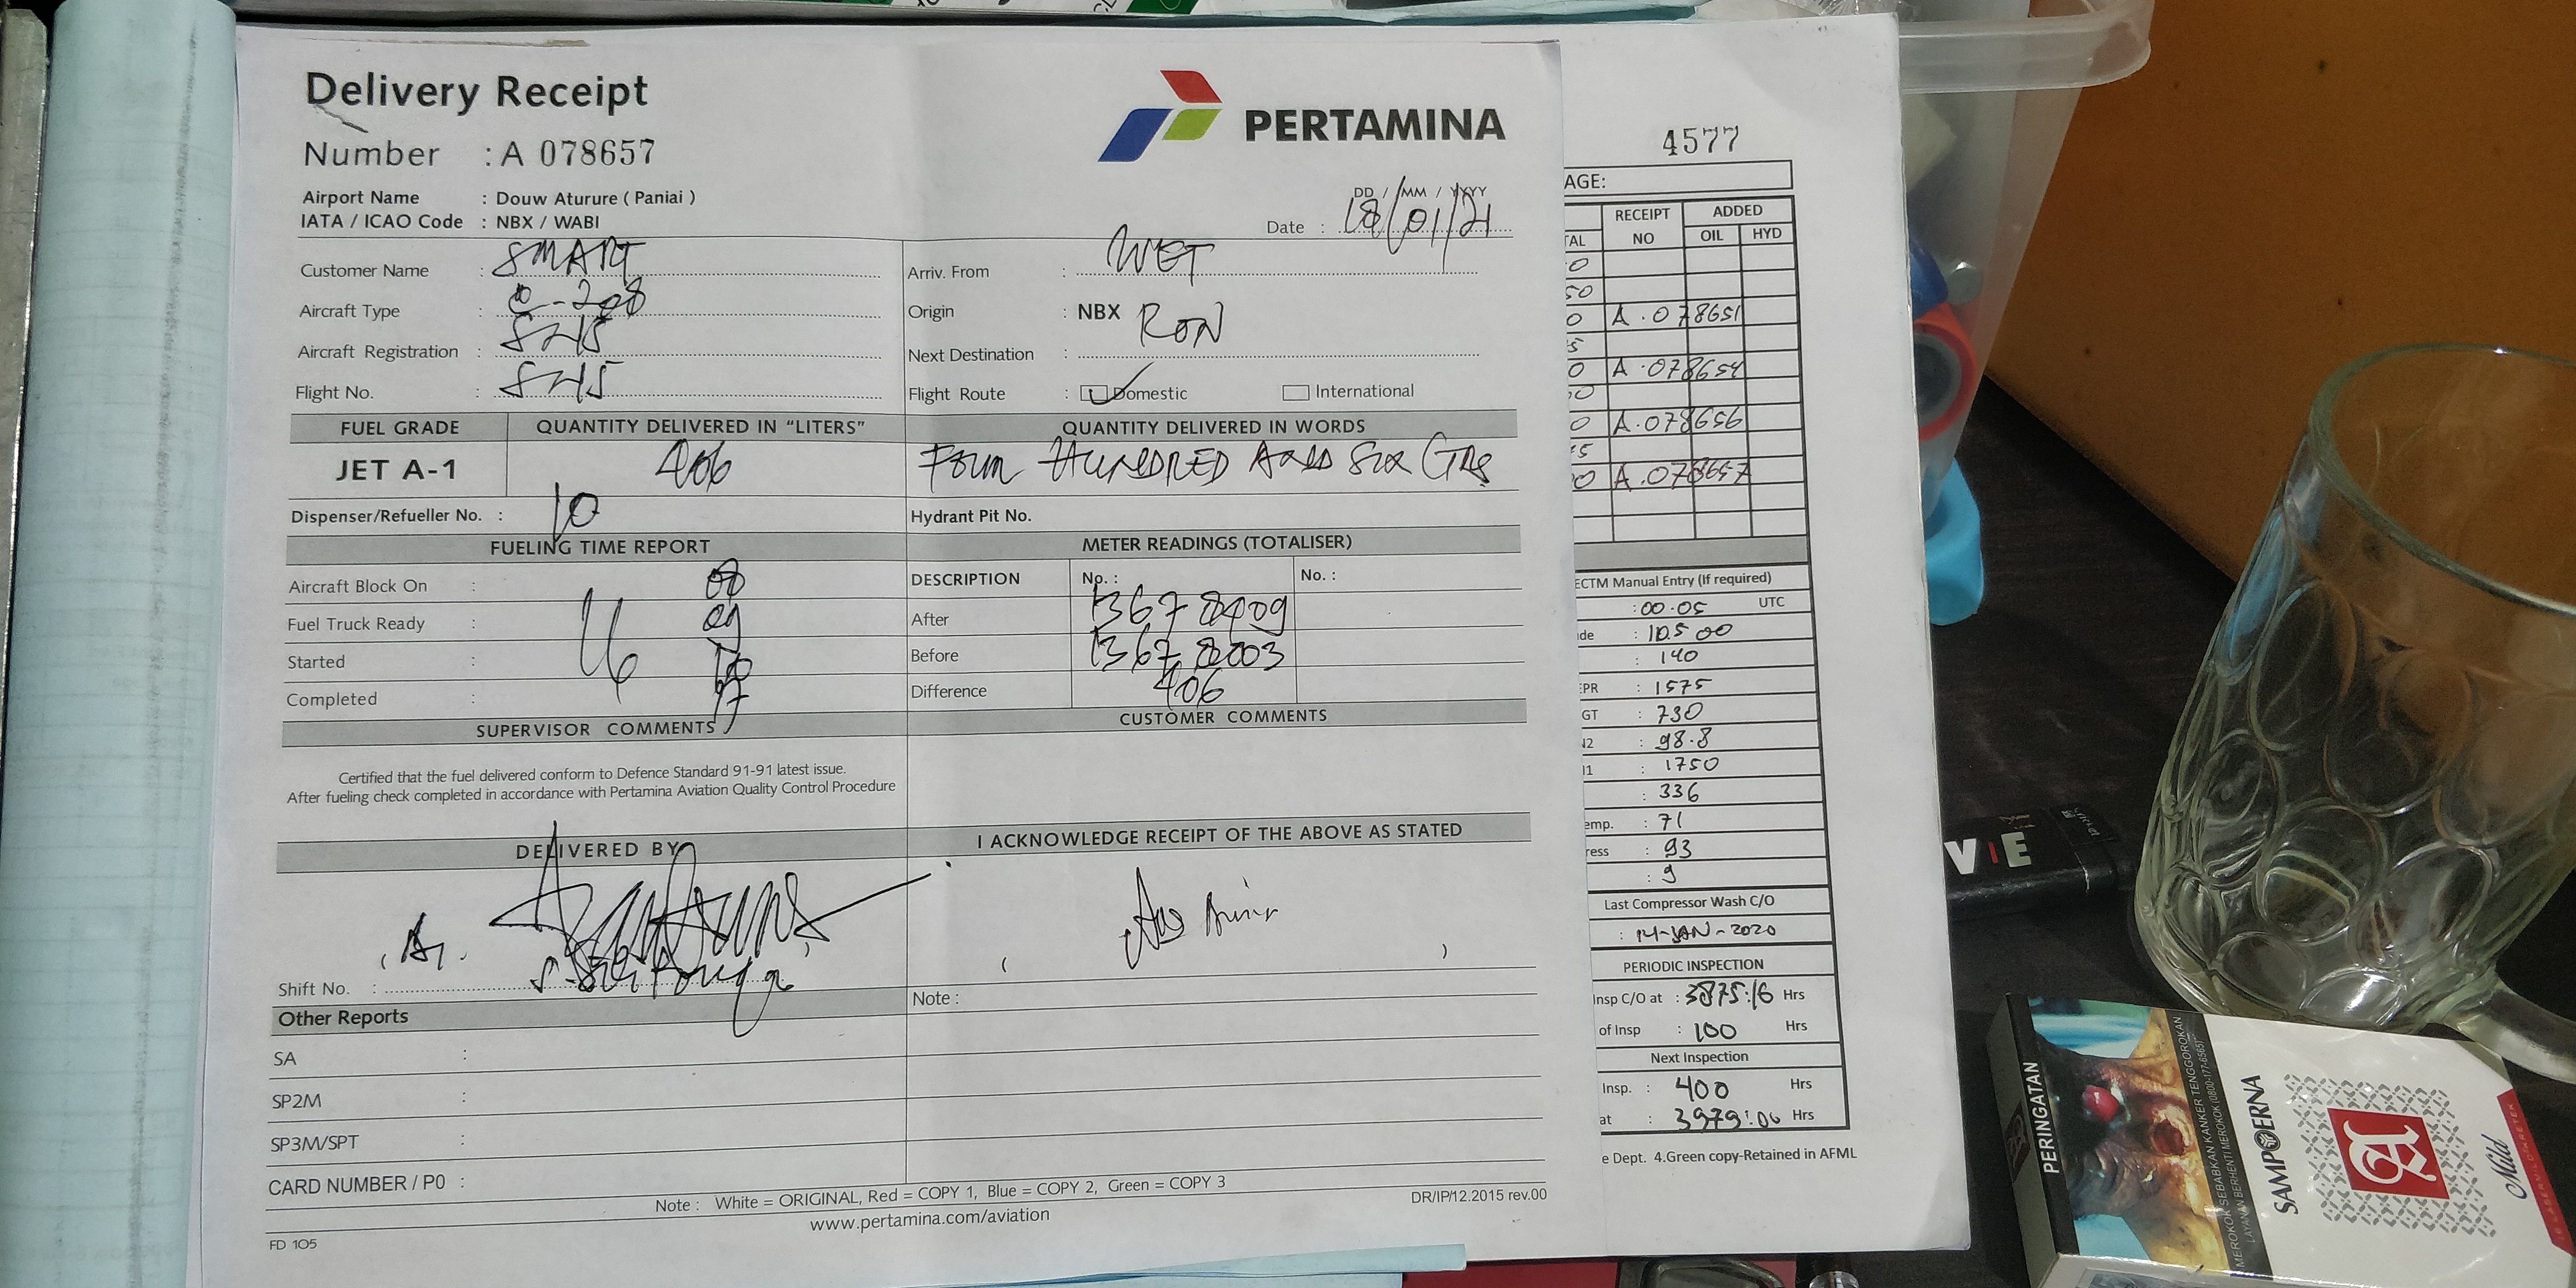 Delivery Receipt
PERTAMINA
Number : A 078657
Airport Name : Douw Aturure ( Paniai )
IATA / ICAO Code : NBX / WABI
DD / MM / YYYY
Date : 18/01/21
Customer Name : SMART
Aircraft Type : C-208
Aircraft Registration :
Flight No. :
Arriv. From : WET
Origin : NBX
Next Destination : RON
Flight Route : Domestic International
FUEL GRADE QUANTITY DELIVERED IN "LITERS" QUANTITY DELIVERED IN WORDS
JET A-1 406 Four HUNDRED And Six
Dispenser/Refueller No. : 10 Hydrant Pit No.
FUELING TIME REPORT METER READINGS (TOTALISER)
Aircraft Block On :
Fuel Truck Ready :
Started :
Completed :
DESCRIPTION No. : No. :
After 13678409
Before 13678003
Difference 406
SUPERVISOR COMMENTS CUSTOMER COMMENTS
Certified that the fuel delivered conform to Defence Standard 91-91 latest issue.
After fueling check completed in accordance with Pertamina Aviation Quality Control Procedure
DELIVERED BY I ACKNOWLEDGE RECEIPT OF THE ABOVE AS STATED
Shift No. :
Note :
Other Reports
SA :
SP2M :
SP3M/SPT :
CARD NUMBER / P0 :
Note : White = ORIGINAL, Red = COPY 1, Blue = COPY 2, Green = COPY 3
DR/IP/12.2015 rev.00
www.pertamina.com/aviation
FD 105
4577
AGE:
RECEIPT NO ADDED
TAL OIL HYD
0
50
0 A.078651
5
0 A.078654
0 A.078656
0 A.078657
ECTM Manual Entry (If required)
: 00.05 UTC
de : 10.500
: 140
EPR : 1575
GT : 730
N2 : 98.8
N1 : 1750
: 336
emp. : 71
ress : 93
: 9
Last Compressor Wash C/O
: 14-JAN-2020
PERIODIC INSPECTION
Insp C/O at : 3875:16 Hrs
of Insp : 100 Hrs
Next Inspection
Insp. : 400 Hrs
at : 3979:00 Hrs
e Dept. 4.Green copy-Retained in AFML
VIE
PERINGATAN
MEROKOK SEBABKAN KANKER TENGGOROKAN
LAYANAN BERHENTI MEROKOK (0800-177-6565)
SAMPOERNA
A
Mild